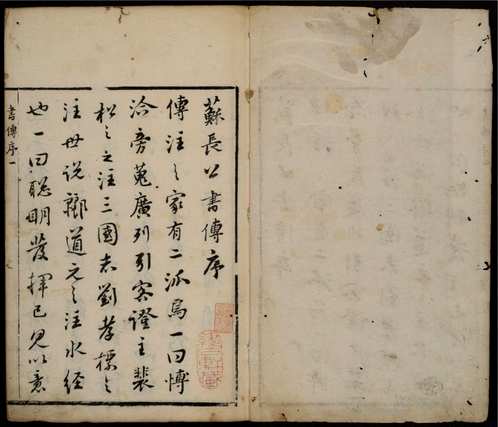 蘇長公書傳序
傳注之家有二派焉一曰博
洽旁蒐廣列引賓證主裴
松之之注三國志劉孝標之
注世說酈道元之注水經
也一曰聰明發揮己見以意
書傳序一